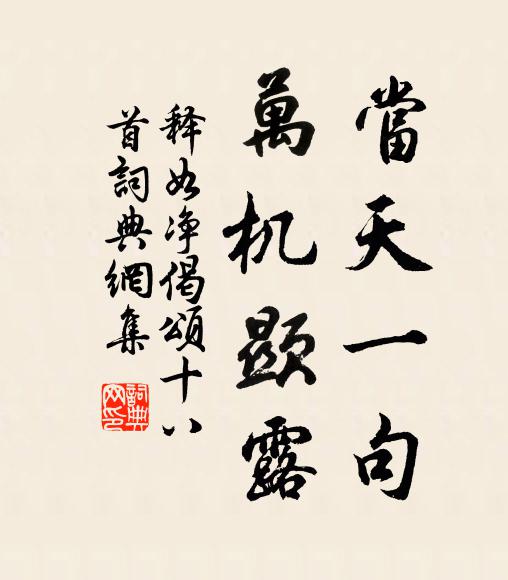 當天一句
萬机顯露
释如净偈頌十八
首詞典網集
詞典
网印